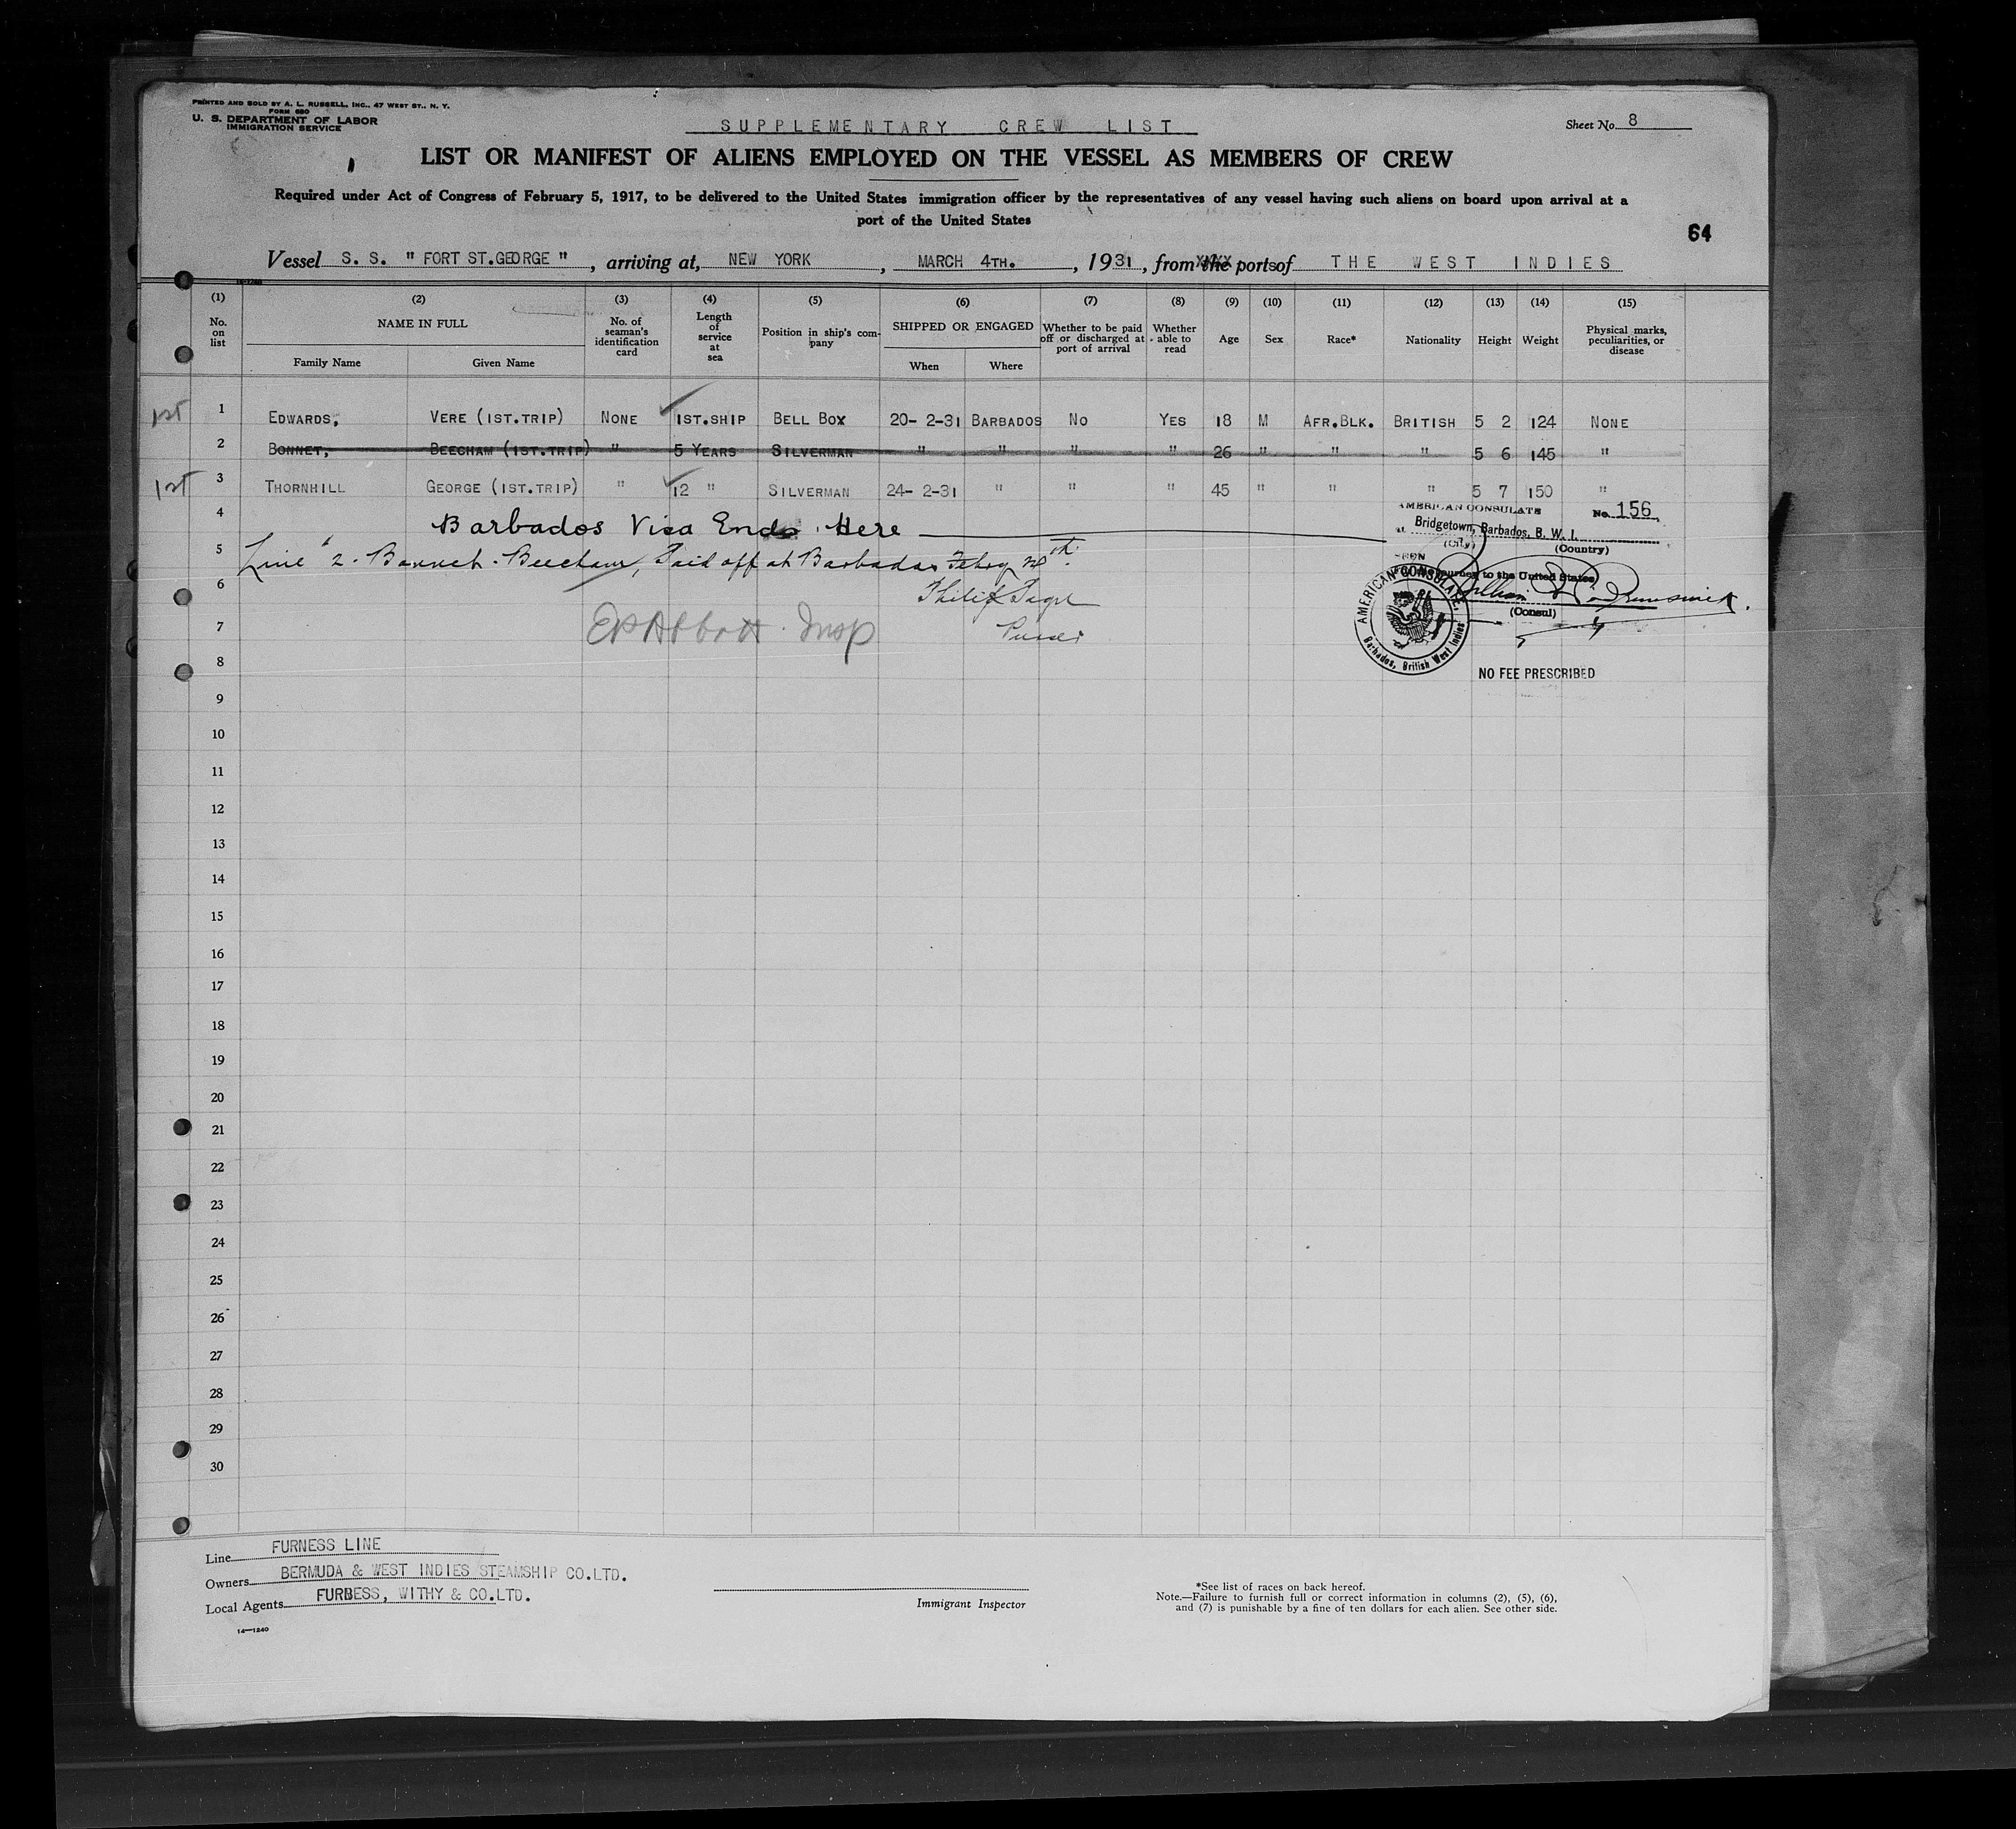 PRINTED AND SOLD BY A. L. RUSSELL, INC., 47 WEST ST., N. Y.
FORM 680
U. S. DEPARTMENT OF LABOR
IMMIGRATION SERVICE
SUPPLEMENTARY CREW LIST
Sheet No. 8
LIST OR MANIFEST OF ALIENS EMPLOYED ON THE VESSEL AS MEMBERS OF CREW
Required under Act of Congress of February 5, 1917, to be delivered to the United States immigration officer by the representatives of any vessel having such aliens on board upon arrival at a
port of the United States
64
Vessel S. S. " FORT ST.GEORGE " , arriving at, NEW YORK , MARCH 4TH. , 1931 , from the ports of THE WEST INDIES
(1) (2) (3) (4) (5) (6) (7) (8) (9) (10) (11) (12) (13) (14) (15)
No. on list
NAME IN FULL
Family Name Given Name
No. of seaman's identification card
Length of service at sea
Position in ship's company
SHIPPED OR ENGAGED
When Where
Whether to be paid off or discharged at port of arrival
Whether able to read
Age Sex Race* Nationality Height Weight
Physical marks, peculiarities, or disease
1st 1 EDWARDS, VERE (1ST.TRIP) NONE 1ST.SHIP BELL BOX 20- 2-31 BARBADOS NO YES 18 M AFR.BLK. BRITISH 5 2 124 NONE
2 BONNET, BEECHAM (1ST.TRIP) " 5 YEARS SILVERMAN " " " " 26 " " " 5 6 145 "
1st 3 THORNHILL GEORGE (1ST.TRIP) " 12 " SILVERMAN 24- 2-31 " " " 45 " " " 5 7 150 "
4 Barbados Visa Ends Here
AMERICAN CONSULATE No. 156
at Bridgetown, Barbados, B. W. I.
(City) (Country)
5 Line 2. Bonnet. Beecham, Paid off at Barbados
6 Philip
journey to the United States
(Consul)
AMERICAN CONSULATE
Barbados, British West Indies
7 Abbott Insp Purser
8
NO FEE PRESCRIBED
9
10
11
12
13
14
15
16
17
18
19
20
21
22
23
24
25
26
27
28
29
30
Line FURNESS LINE
Owners BERMUDA & WEST INDIES STEAMSHIP CO.LTD.
Local Agents FURBESS, WITHY & CO.LTD.
14—1240
Immigrant Inspector
*See list of races on back hereof.
Note.—Failure to furnish full or correct information in columns (2), (5), (6),
and (7) is punishable by a fine of ten dollars for each alien. See other side.